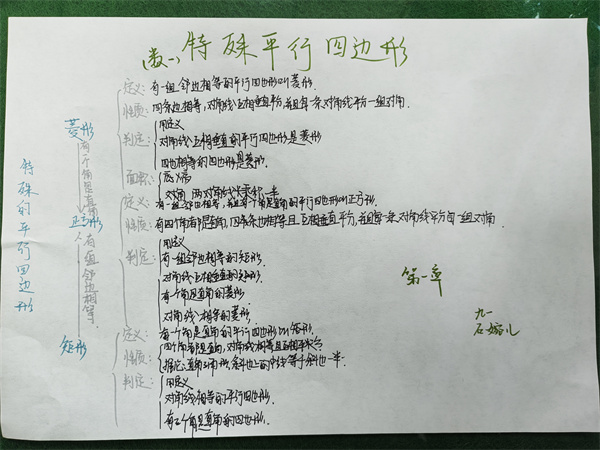 (数一) 特殊平行四边形
特殊的平行四边形
菱形
有一个角是直角
正方形
有一组邻边相等
矩形
定义:有一组邻边相等的平行四边形叫菱形.
性质:四条边相等,对角线互相垂直平分,并且每一条对角线平分一组对角.
判定:用定义
对角线互相垂直的平行四边形是菱形
四边相等的四边形是菱形.
面积:底×高
对角 两对角线乘积 一半
定义:有一组邻边相等,并且有个角是直角的平行四边形叫正方形.
性质:有四个角都是直角,四条边相等且互相垂直平分,并且每一条对角线平分每一组对角.
判定:用定义
有一组邻边相等的矩形.
对角线互相垂直的矩形.
有个角是直角的菱形.
对角线相等的菱形.
定义:有一个角是直角的平行四边形叫矩形.
性质:四个角都是直角,对角线相等且互相平分
推论:直角三角形,斜边上的中线等于斜边一半.
判定:用定义
对角线相等的平行四边形.
有三个角是直角的四边形.
第一章
九一